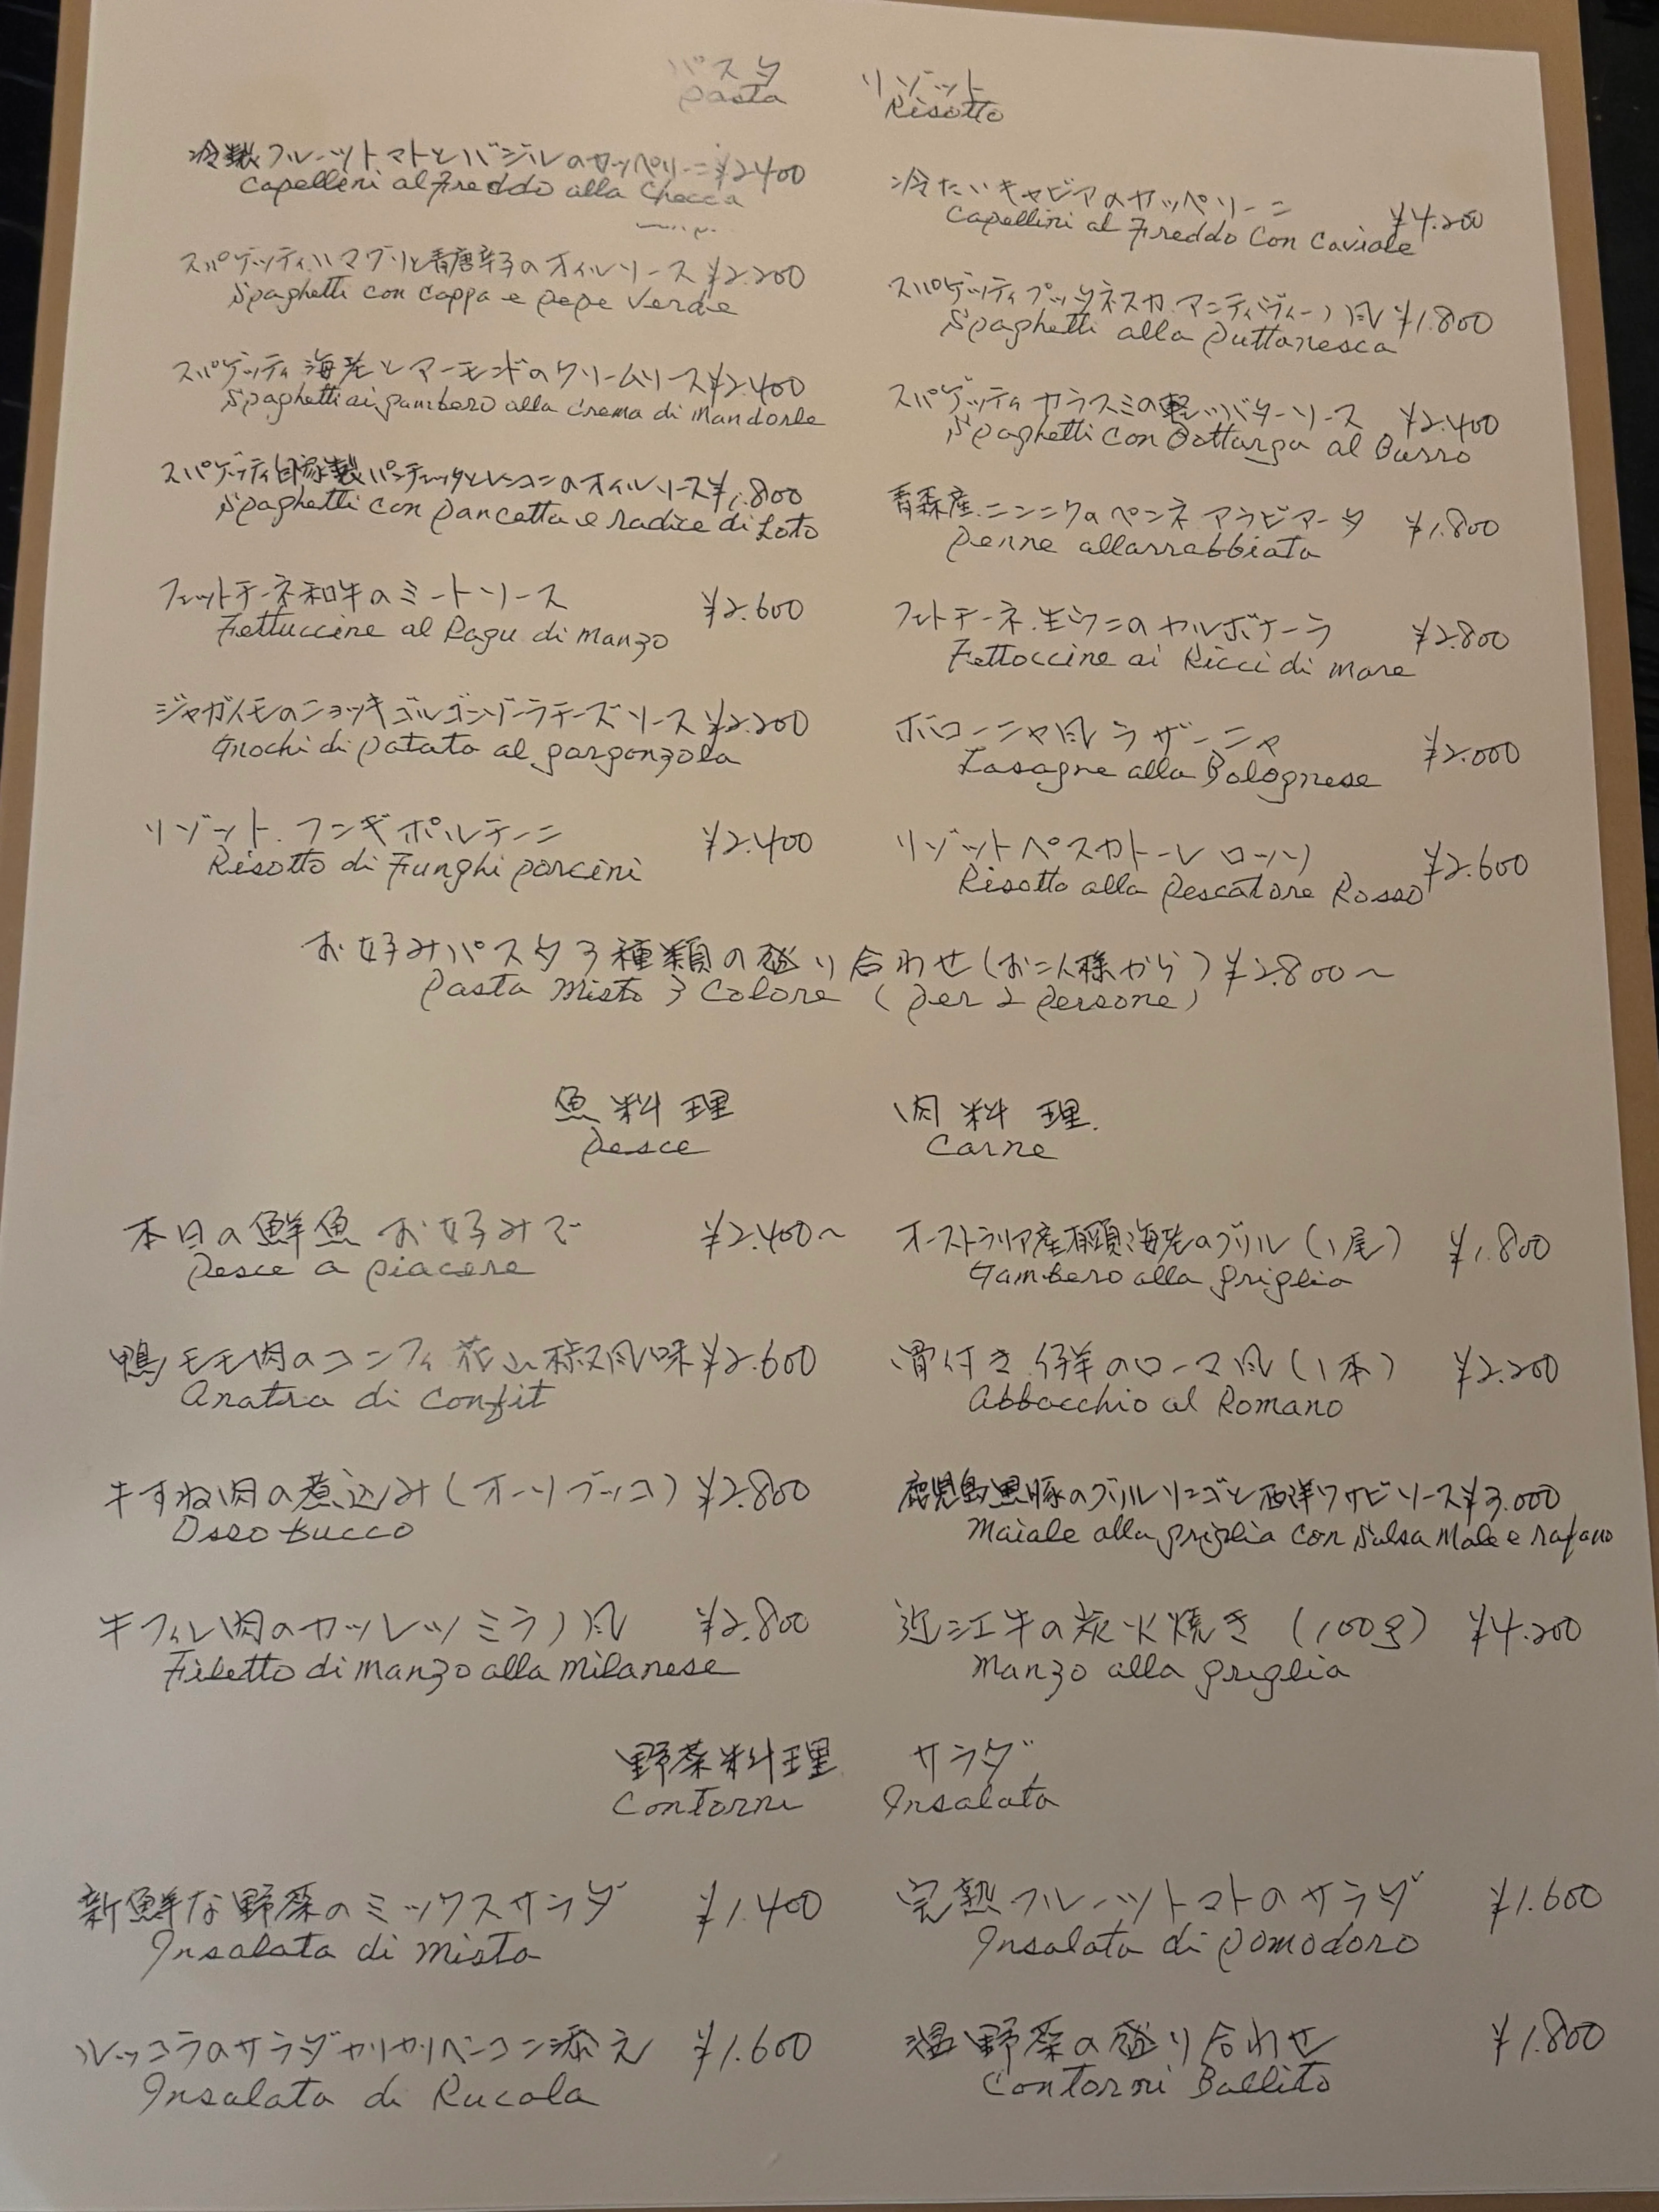 パスタ リゾット
Pasta Risotto
冷製フルーツトマトとバジルのカッペリーニ ¥2.400
Capellini al Freddo alla Checca
冷たいキャビアのカッペリーニ ¥4.200
Capellini al Freddo Con Caviale
スパゲッティハマグリと青唐辛子のオイルソース ¥2.200
Spaghetti con Coppa e Pepe Verde
スパゲッティプッタネスカ アンティヴィーノ風 ¥1.800
Spaghetti alla Puttanesca
スパゲッティ海老とアーモンドのクリームソース ¥2.400
Spaghetti ai gambero alla Crema di Mandorle
スパゲッティカラスミの軽いバターソース ¥2.400
Spaghetti Con Bottarga al Burro
スパゲッティ自家製パンチェッタとレンコンのオイルソース ¥1.800
Spaghetti con Pancetta e radice di Loto
青森産ニンニクのペンネ アラビアータ ¥1.800
Penne allarrabbiata
フェットチーネ和牛のミートソース ¥2.600
Fettuccine al Ragu di Manzo
フェトチーネ 生ウニのカルボナーラ ¥2.800
Fettoccine ai Ricci di mare
ジャガイモのニョッキゴルゴンゾーラチーズソース ¥2.200
Gnochi di Patata al gorgonzola
ボローニャ風ラザーニャ ¥2.000
Lasagne alla Bolognese
リゾット フンギポルチーニ ¥2.400
Risotto di Funghi porcini
リゾットペスカトーレ ロッソ ¥2.600
Risotto alla Pescatore Rosso
お好みパスタ3種類の盛り合わせ(お二人様から) ¥2.800〜
Pasta Misto 3 Colore (per 2 persone)
魚料理 肉料理
Pesce Carne
本日の鮮魚 お好みで ¥2.400〜
Pesce a piacere
オーストラリア産有頭海老のグリル(1尾) ¥1.800
Gambero alla griglia
鴨モモ肉のコンフィ 花山椒風味 ¥2.600
Anatra di Confit
骨付き仔羊のローマ風(1本) ¥2.200
Abbacchio al Romano
牛すね肉の煮込み(オーソブッコ) ¥2.800
Osso bucco
鹿児島黒豚のグリルリンゴと西洋ワサビソース ¥3.000
Maiale alla griglia con Salsa Male e rafano
牛フィレ肉のカツレツミラノ風 ¥2.800
Filetto di Manzo alla Milanese
近江牛の炭火焼き (100g) ¥4.200
Manzo alla griglia
野菜料理 サラダ
Contorni Insalata
新鮮な野菜のミックスサラダ ¥1.400
Insalata di Mista
完熟フルーツトマトのサラダ ¥1.600
Insalata di Pomodoro
ルッコラのサラダカリカリベーコン添え ¥1.600
Insalata di Rucola
温野菜の盛り合わせ ¥1.800
Contorni Bollito